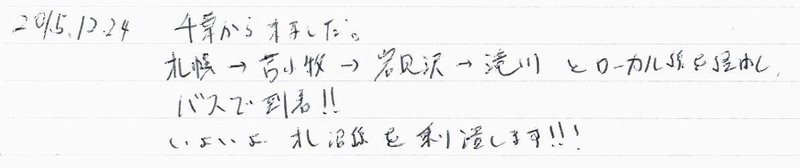 2015.12.24 千葉から来ました。
札幌→苫小牧→岩見沢→滝川とローカル線を経由し、
バスで到着!!
いよいよ札沼線を乗り潰します!!!